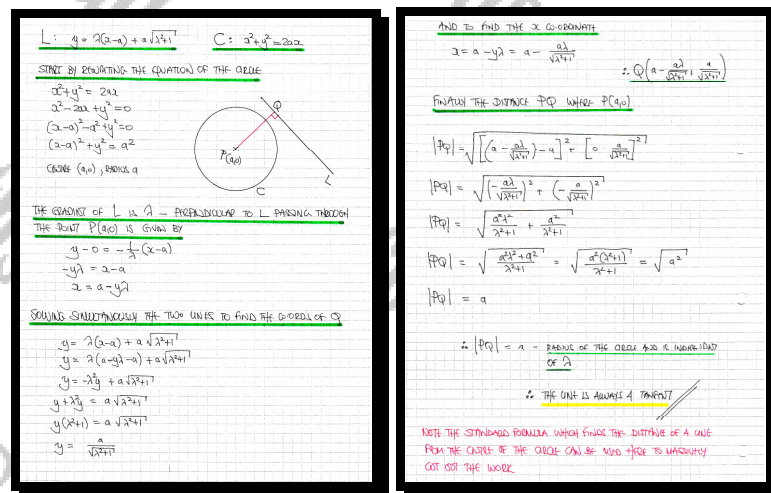 L: y = λ(x-a) + a√(λ²+1)    C: x²+y² = 2ax
START BY REWRITING THE EQUATION OF THE CIRCLE
x²+y² = 2ax
x²-2ax+y²=0
(x-a)²-a²+y²=0
(x-a)²+y² = a²
CENTRE (a,0), RADIUS a
Q
P(a,0)
L
C
THE GRADIENT OF L IS λ – PERPENDICULAR TO L PASSING THROUGH
THE POINT P(a,0) IS GIVEN BY
y-0 = -1/λ (x-a)
-yλ = x-a
x = a-yλ
SOLVING SIMULTANEOUSLY THE TWO LINES TO FIND THE CO-ORDS OF Q
y = λ(x-a) + a√(λ²+1)
y = λ(a-yλ-a) + a√(λ²+1)
y = -λ²y + a√(λ²+1)
y+λ²y = a√(λ²+1)
y(λ²+1) = a√(λ²+1)
y = a/√(λ²+1)
AND TO FIND THE x CO-ORDINATE
x = a - yλ = a - aλ/√(λ²+1)
∴ Q(a - aλ/√(λ²+1), a/√(λ²+1))
FINALLY THE DISTANCE PQ WHERE P(a,0)
|PQ| = √([(a - aλ/√(λ²+1)) - a]² + [0 - a/√(λ²+1)]²)
|PQ| = √((-aλ/√(λ²+1))² + (-a/√(λ²+1))²)
|PQ| = √(a²λ²/(λ²+1) + a²/(λ²+1))
|PQ| = √((a²λ²+a²)/(λ²+1)) = √(a²(λ²+1)/(λ²+1)) = √a²
|PQ| = a
∴ |PQ| = a – RADIUS OF THE CIRCLE AND IS INDEPENDENT
OF λ
∴ THE LINE IS ALWAYS A TANGENT
NOTE THE STANDARD FORMULA WHICH FINDS THE DISTANCE OF A LINE
FROM THE CENTRE OF THE CIRCLE CAN BE USED HERE TO MASSIVELY
CUT OUT THE WORK